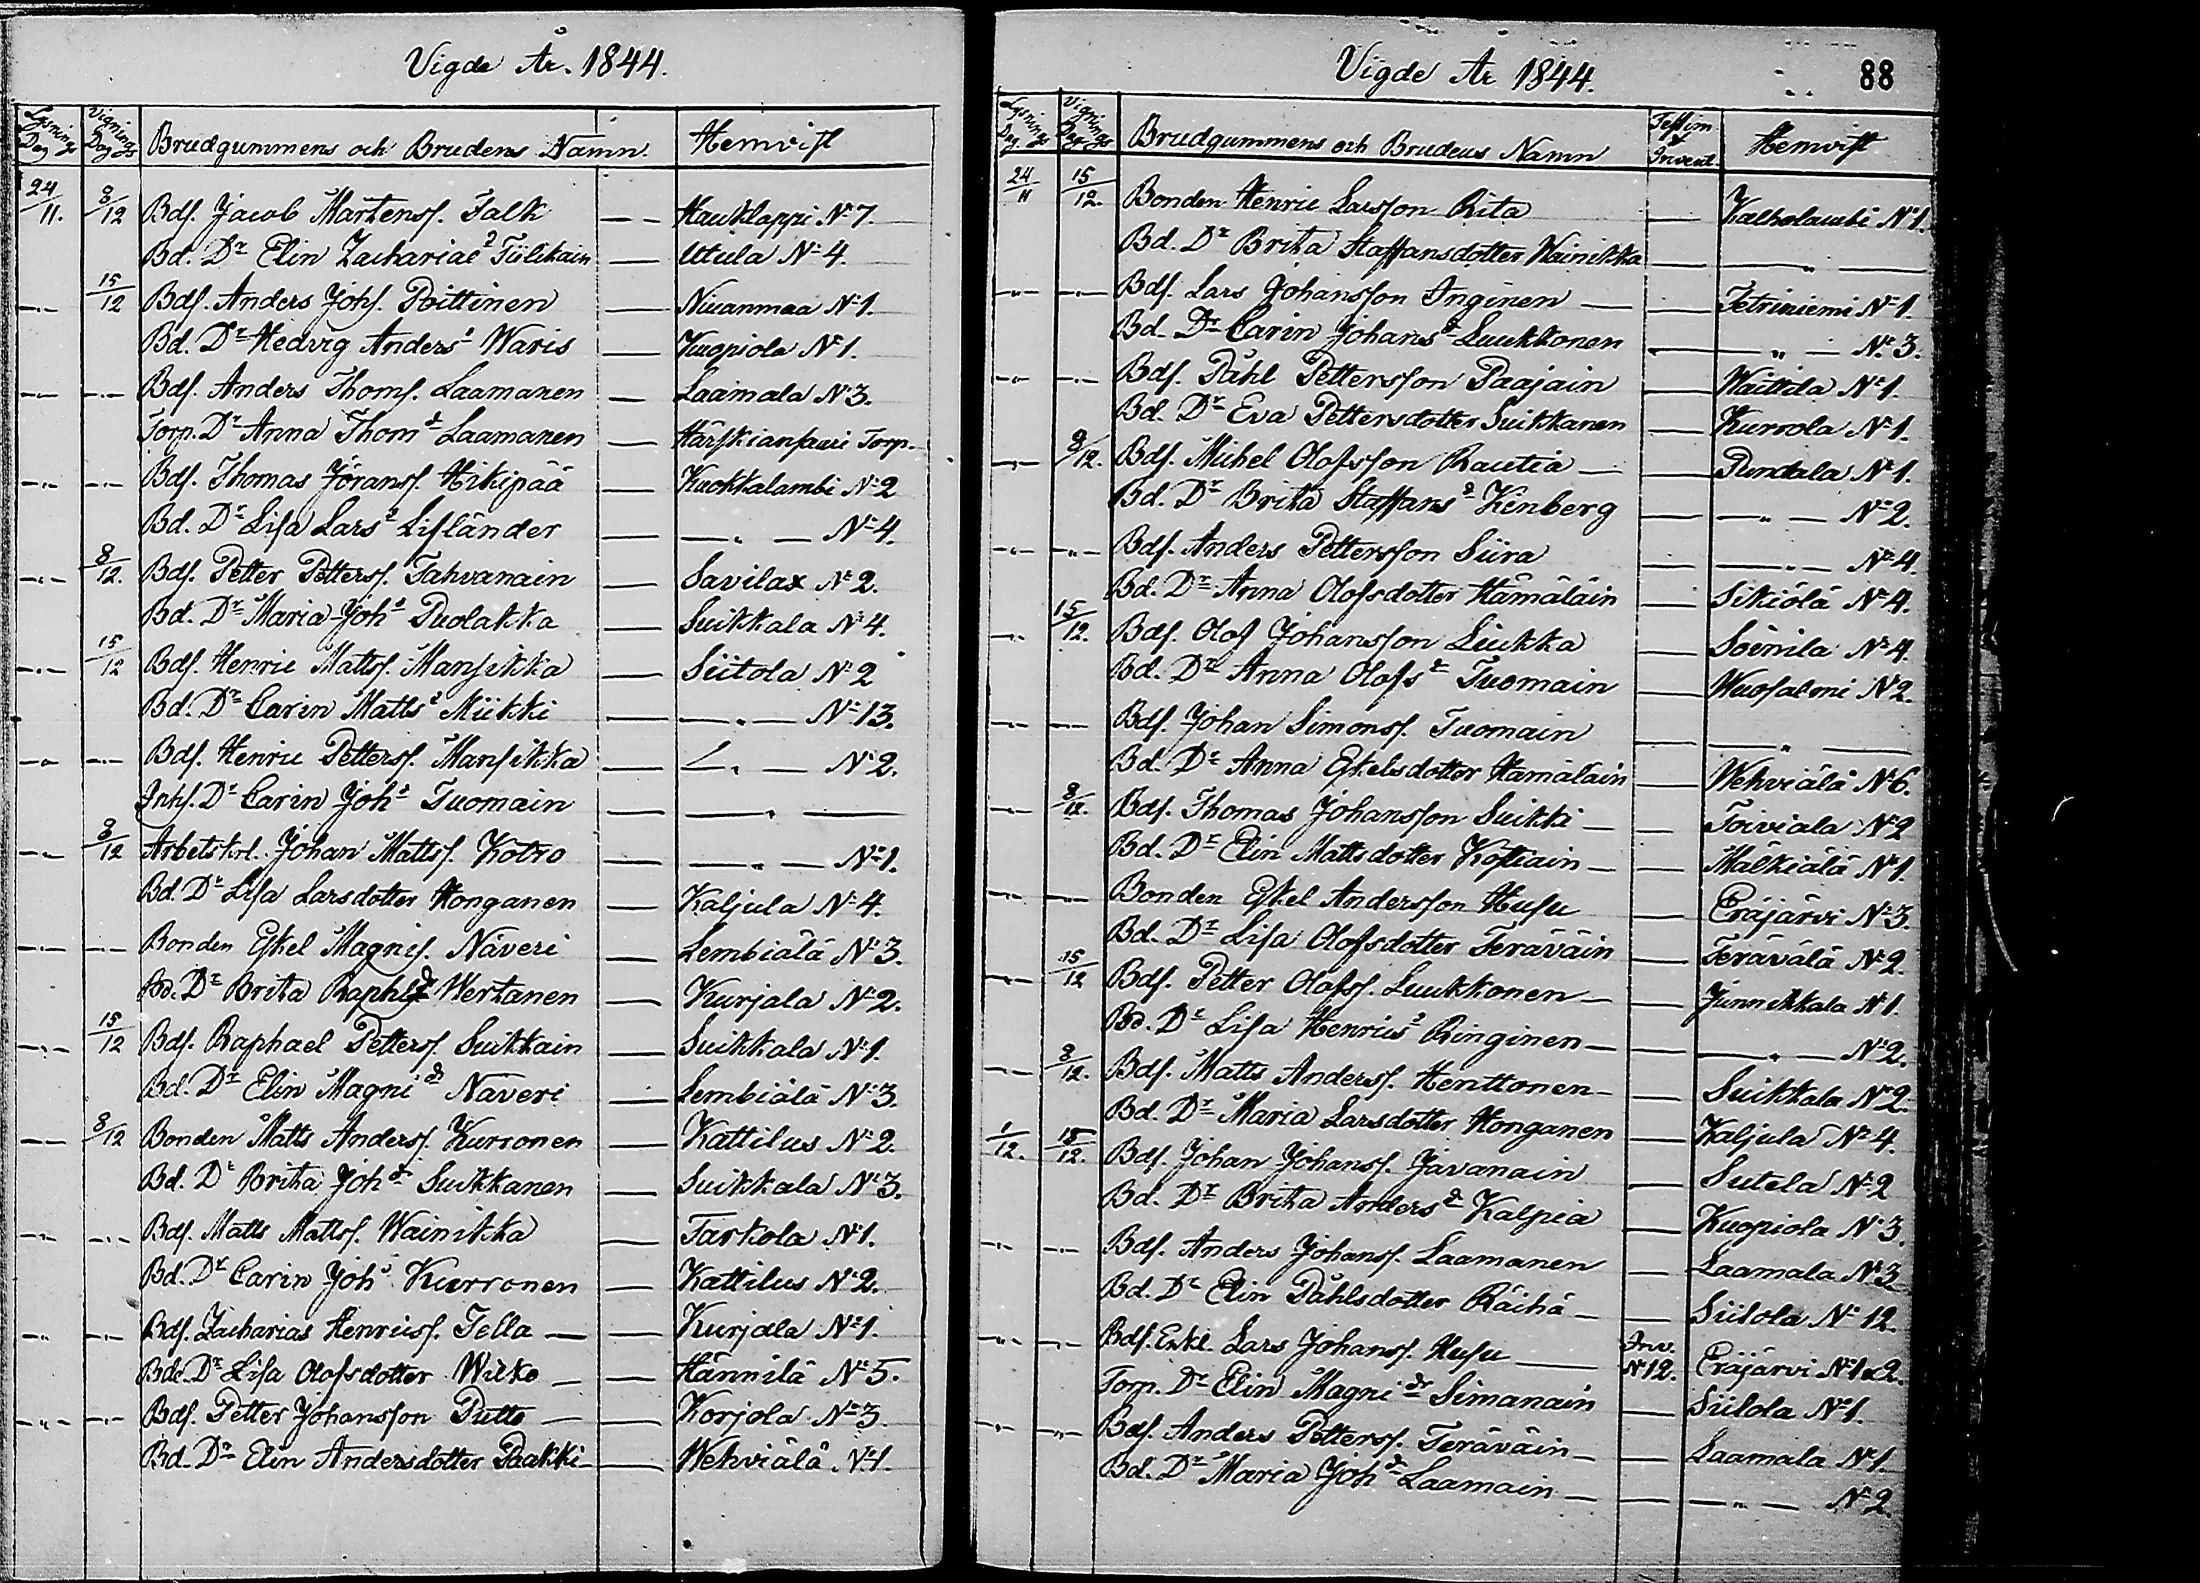 Vigde År. 1844.
Lysnings Dag Vignings Dag Brudgummens och Brudens Namn. Hemvist
24/11. 8/12 Bdſ. Jacob Mårtensſ. Falk — — Haukilappi No 7.
Bd. Dr Elin Zachariae d Tiilikain — Utula No 4.
—"— 15/12 Bdſ. Anders Johſ. Poittinen — Niuanmaa No 1.
Bd. Dr Hedvig Anders d Waris — Kuopiola No 1.
—"— —"— Bdſ. Anders Thomſ. Laamanen — Laamala No 3.
Torp. Dr Anna Thom d Laamanen — Härskiansaari Torp.
—"— —"— Bdſ. Thomas Jöransſ. Hikipää — Kuokkalambi No 2
Bd. Dr Lisa Lars d Lifländer — —"— No 4.
—"— 8/12. Bdſ. Petter Pettersſ. Tahvanain — Savilax No 2.
Bd. Dr Maria Joh d Puolakka — Suikkala No 4.
—"— 15/12 Bdſ. Henric Mattsſ. Mansikka — Siitola No 2
Bd. Dr Carin Matts d Miikki — —"— No 13.
—"— —"— Bdſ. Henric Pettersſ. Mansikka — —"— No 2.
Inhſ. Dr Carin Joh d Tuomain — —"—
—"— 8/12 Arbetskrl. Johan Mattsſ. Kotro — —"— No 1.
Bd. Dr Lisa Larsdotter Honganen — Kaljula No 4.
—"— —"— Bonden Eskel Magnisſ. Näveri — Lembiälä No 3.
Bd. Dr Brita Raphls d Wertanen — Kurjala No 2.
—"— 15/12 Bdſ. Raphael Pettersſ. Suikkain — Suikkala No 1.
Bd. Dr Elin Magni dr Näveri — Lembiälä No 3.
—"— 8/12 Bonden Matts Andersſ. Kurronen — Kattilus No 2.
Bd. Dr Brita Joh dr Suikkanen — Suikkala No 3.
—"— —"— Bdſ. Matts Mattsſ. Wainikka — Tarkola No 1.
Bd. Dr Carin Joh d Kurronen — Kattilus No 2.
—"— —"— Bdſ. Zacharias Henricsſ. Tella — Kurjala No 1.
Bd. Dr Lisa Olofsdotter Wilko — Hännilä No 5.
—"— —"— Bdſ. Petter Johansſon Putto — Korjola No 3.
Bd. Dr Elin Andersdotter Paakki — Wehviälä No 1.
Vigde År 1844. 88
Lysnings Dag Vignings Dag Brudgummens och Brudens Namn Testim & Invent. Hemvist
24/11 15/12. Bonden Henric Larsſon Rita — Kalholambi No 1.
Bd. Dr Brita Staffansdotter Wainikka — —"—
—"— —"— Bdſ. Lars Johansſon Inginen — Tetriniemi No 1.
Bd. Dr Carin Johans d Luukkonen — —"— No 3.
—"— —"— Bdſ. Påhl Pettersſon Paajain — Waittila No 1.
Bd. Dr Eva Pettersdotter Suikkanen — Kurrola No 1.
—"— 8/12. Bdſ. Michel Olofsſon Rautia — Pundala No 1.
Bd. Dr Brita Staffans d Kenberg — —"— No 2.
—"— —"— Bdſ. Anders Pettersſon Siira — —"— No 4.
Bd. Dr Anna Olofsdotter Hämäläin — Sikiölä No 4.
—"— 15/12. Bdſ. Olof Johansſon Liukka — Soinila No 4.
Bd. Dr Anna Olofs d Tuomain — Wuosalmi No 2.
—"— —"— Bdſ. Johan Simonsſ. Tuomain — —"—
Bd. Dr Anna Eskelsdotter Hämäläin — Wehviälä No 6.
—"— 8/12. Bdſ. Thomas Johansſon Suikki — Toiviala No 2
Bd. Dr Elin Mattsdotter Kostiain — Mälkiälä No 1.
—"— —"— Bonden Eskel Andersſon Husu — Eräjärvi No 3.
Bd. Dr Lisa Olofsdotter Teräväin — Terävälä No 2.
—"— 15/12 Bdſ. Petter Olofsſ. Luukkonen — Junnikkala No 1.
Bd. Dr Lisa Henrics d Ringinen — —"— No 2.
—"— 8/12. Bdſ. Matts Andersſ. Henttonen — Suikkala No 2.
Bd. Dr Maria Larsdotter Honganen — Kaljula No 4.
1/12. 15/12. Bdſ. Johan Johansſ. Javanain — Sutela No 2
Bd. Dr Brita Anders d Kalpia — Kuopiola No 3.
—"— —"— Bdſ. Anders Johansſ. Laamanen — Laamala No 3
Bd. Dr Elin Påhlsdotter Räihä — Siitola No 12.
—"— —"— Bdſ. Enkl. Lars Johansſ. Husu — Inv. No 12. Eräjärvi No 1 & 2.
Torp. Dr Elin Magni dr Simanain — Siitola No 1.
—"— —"— Bdſ. Anders Pettersſ. Teräväin — Laamala No 1.
Bd. Dr Maria Joh dr Laamain — —"— No 2.